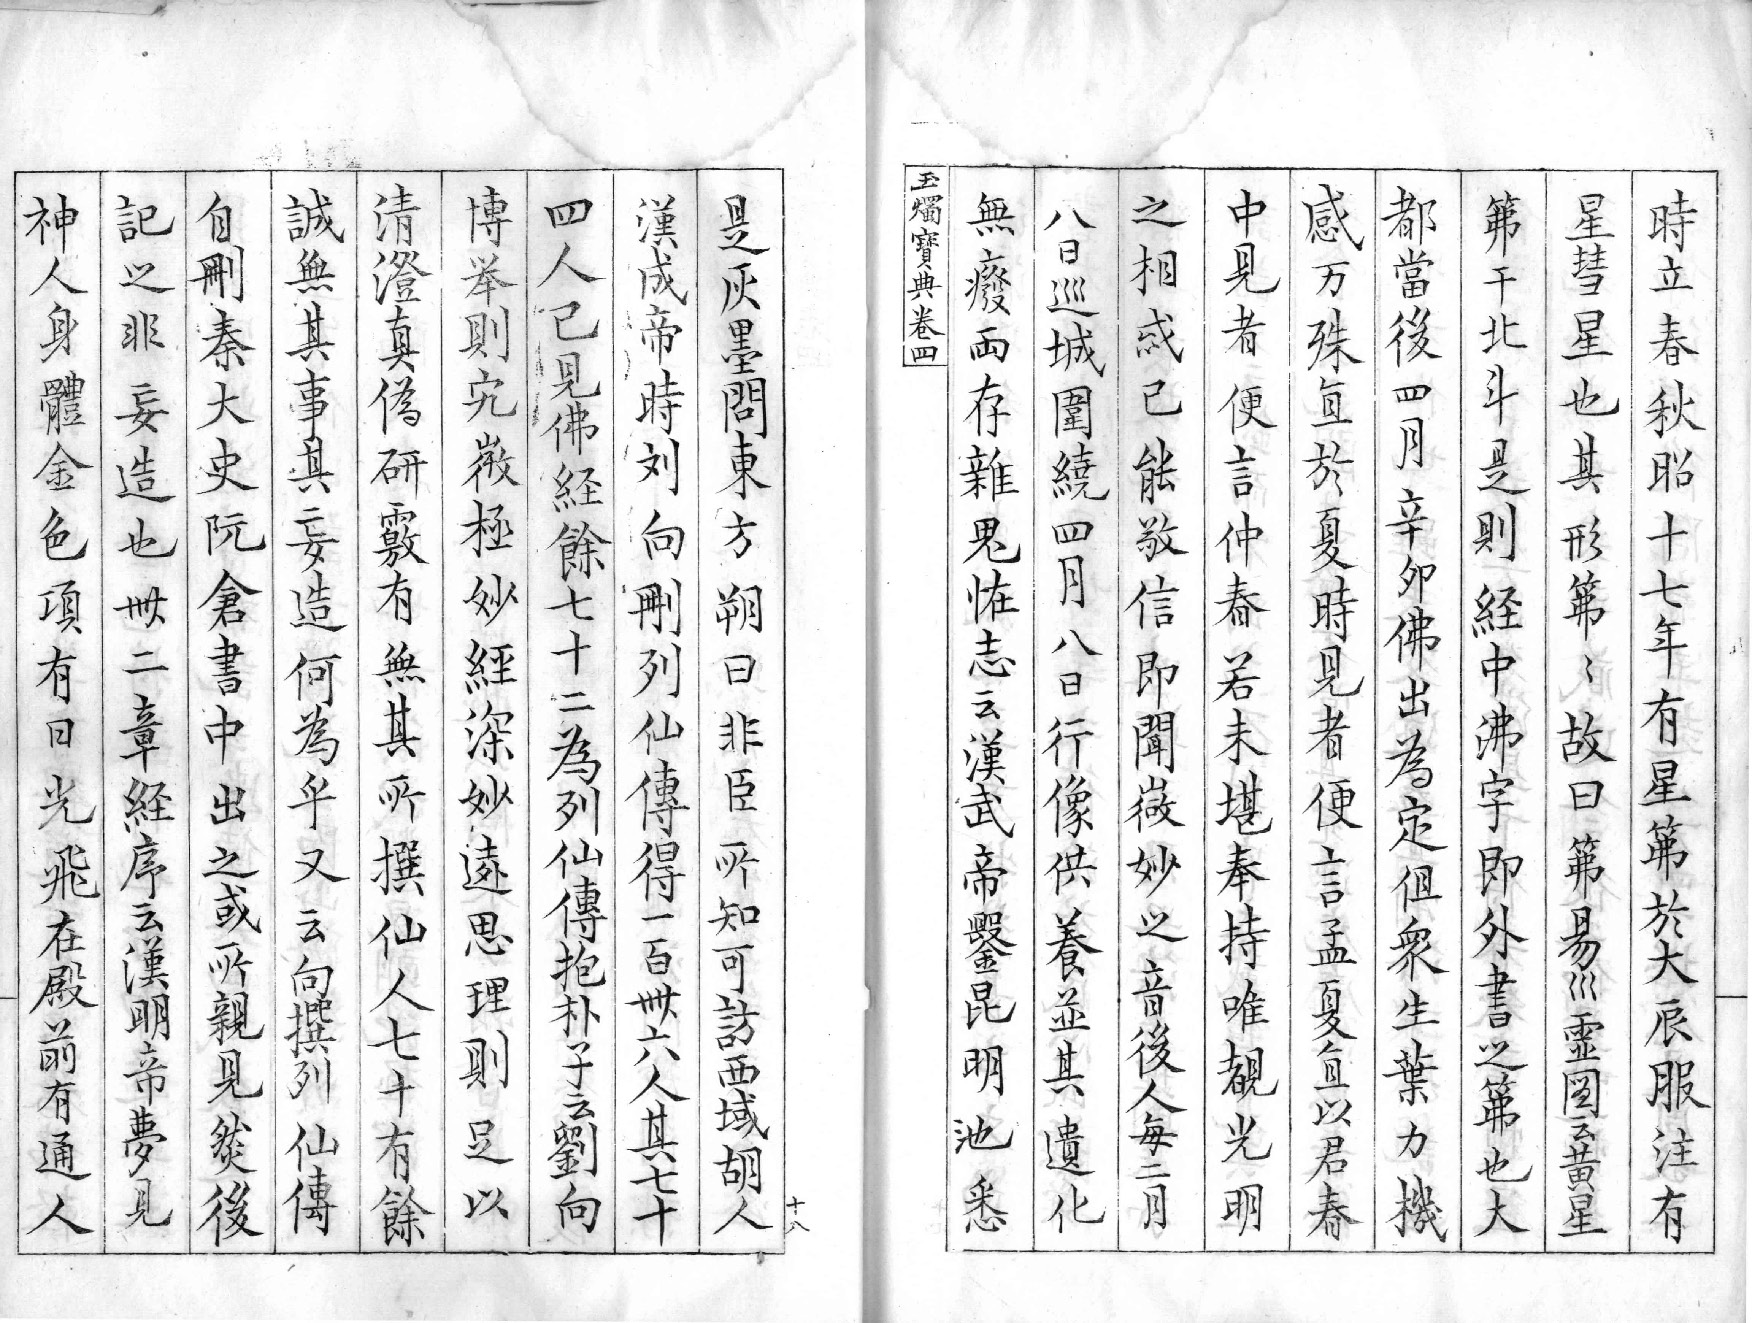 時立春秋昭十七年有星第於大辰服注有
星彗星也其形第〻故曰第易巛霊図云黄星
第干北斗是則経中沸字即外書之第也大
都當後四月辛夘佛出為定但衆生葉力機
感万殊亘於夏時見者便言孟夏亘以君春
中見者便言仲春若未堪奉持唯覩光明
之相或已能敬信即聞微妙之音後人每二月
八日巡城圍繞四月八日行像供養並其遺化
無癈而存雜鬼恠志云漢武帝鑿昆明池悉
玉燭寶典卷四
是灰墨問東方朔曰非臣所知可訪西域胡人
漢成帝時刘向刪列仙傳得一百卌六人其七十
四人已見佛経餘七十二為列仙傳抱朴子云劉向
博举則究微極妙經深妙遠思理則足以
清澄真偽研覈有無其所撰仙人七十有餘
誠無其事其妄造何為乎又云向撰列仙傳
自刪秦大史阮倉書中出之或所親見然後
記之非妄造也卌二章経序云漢明帝夢見
神人身體金色項有日光飛在殿前有通人
十八